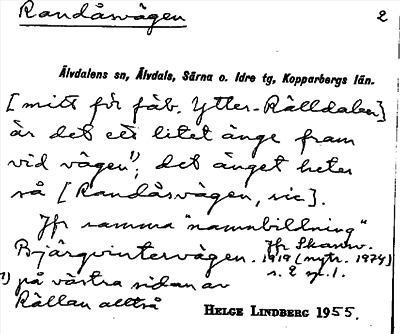 Randåsvägen 2
Älvdalens sn, Älvdals, Särna o. Idre tg, Kopparbergs län.
[mitt för fäb. Ytter-Rälldalen]
är det ett litet änge fram
vid vägen¹⁾, det änget heter
så [Randåsvägen, sic].
Jfr samma "namnbildning"
Bjärgvintervägen. Jfr Skanv.
1919 (nytr. 1974)
s. 2 m. 1.
¹⁾ på västra sidan av
Rällan alltså
HELGE LINDBERG 1955.